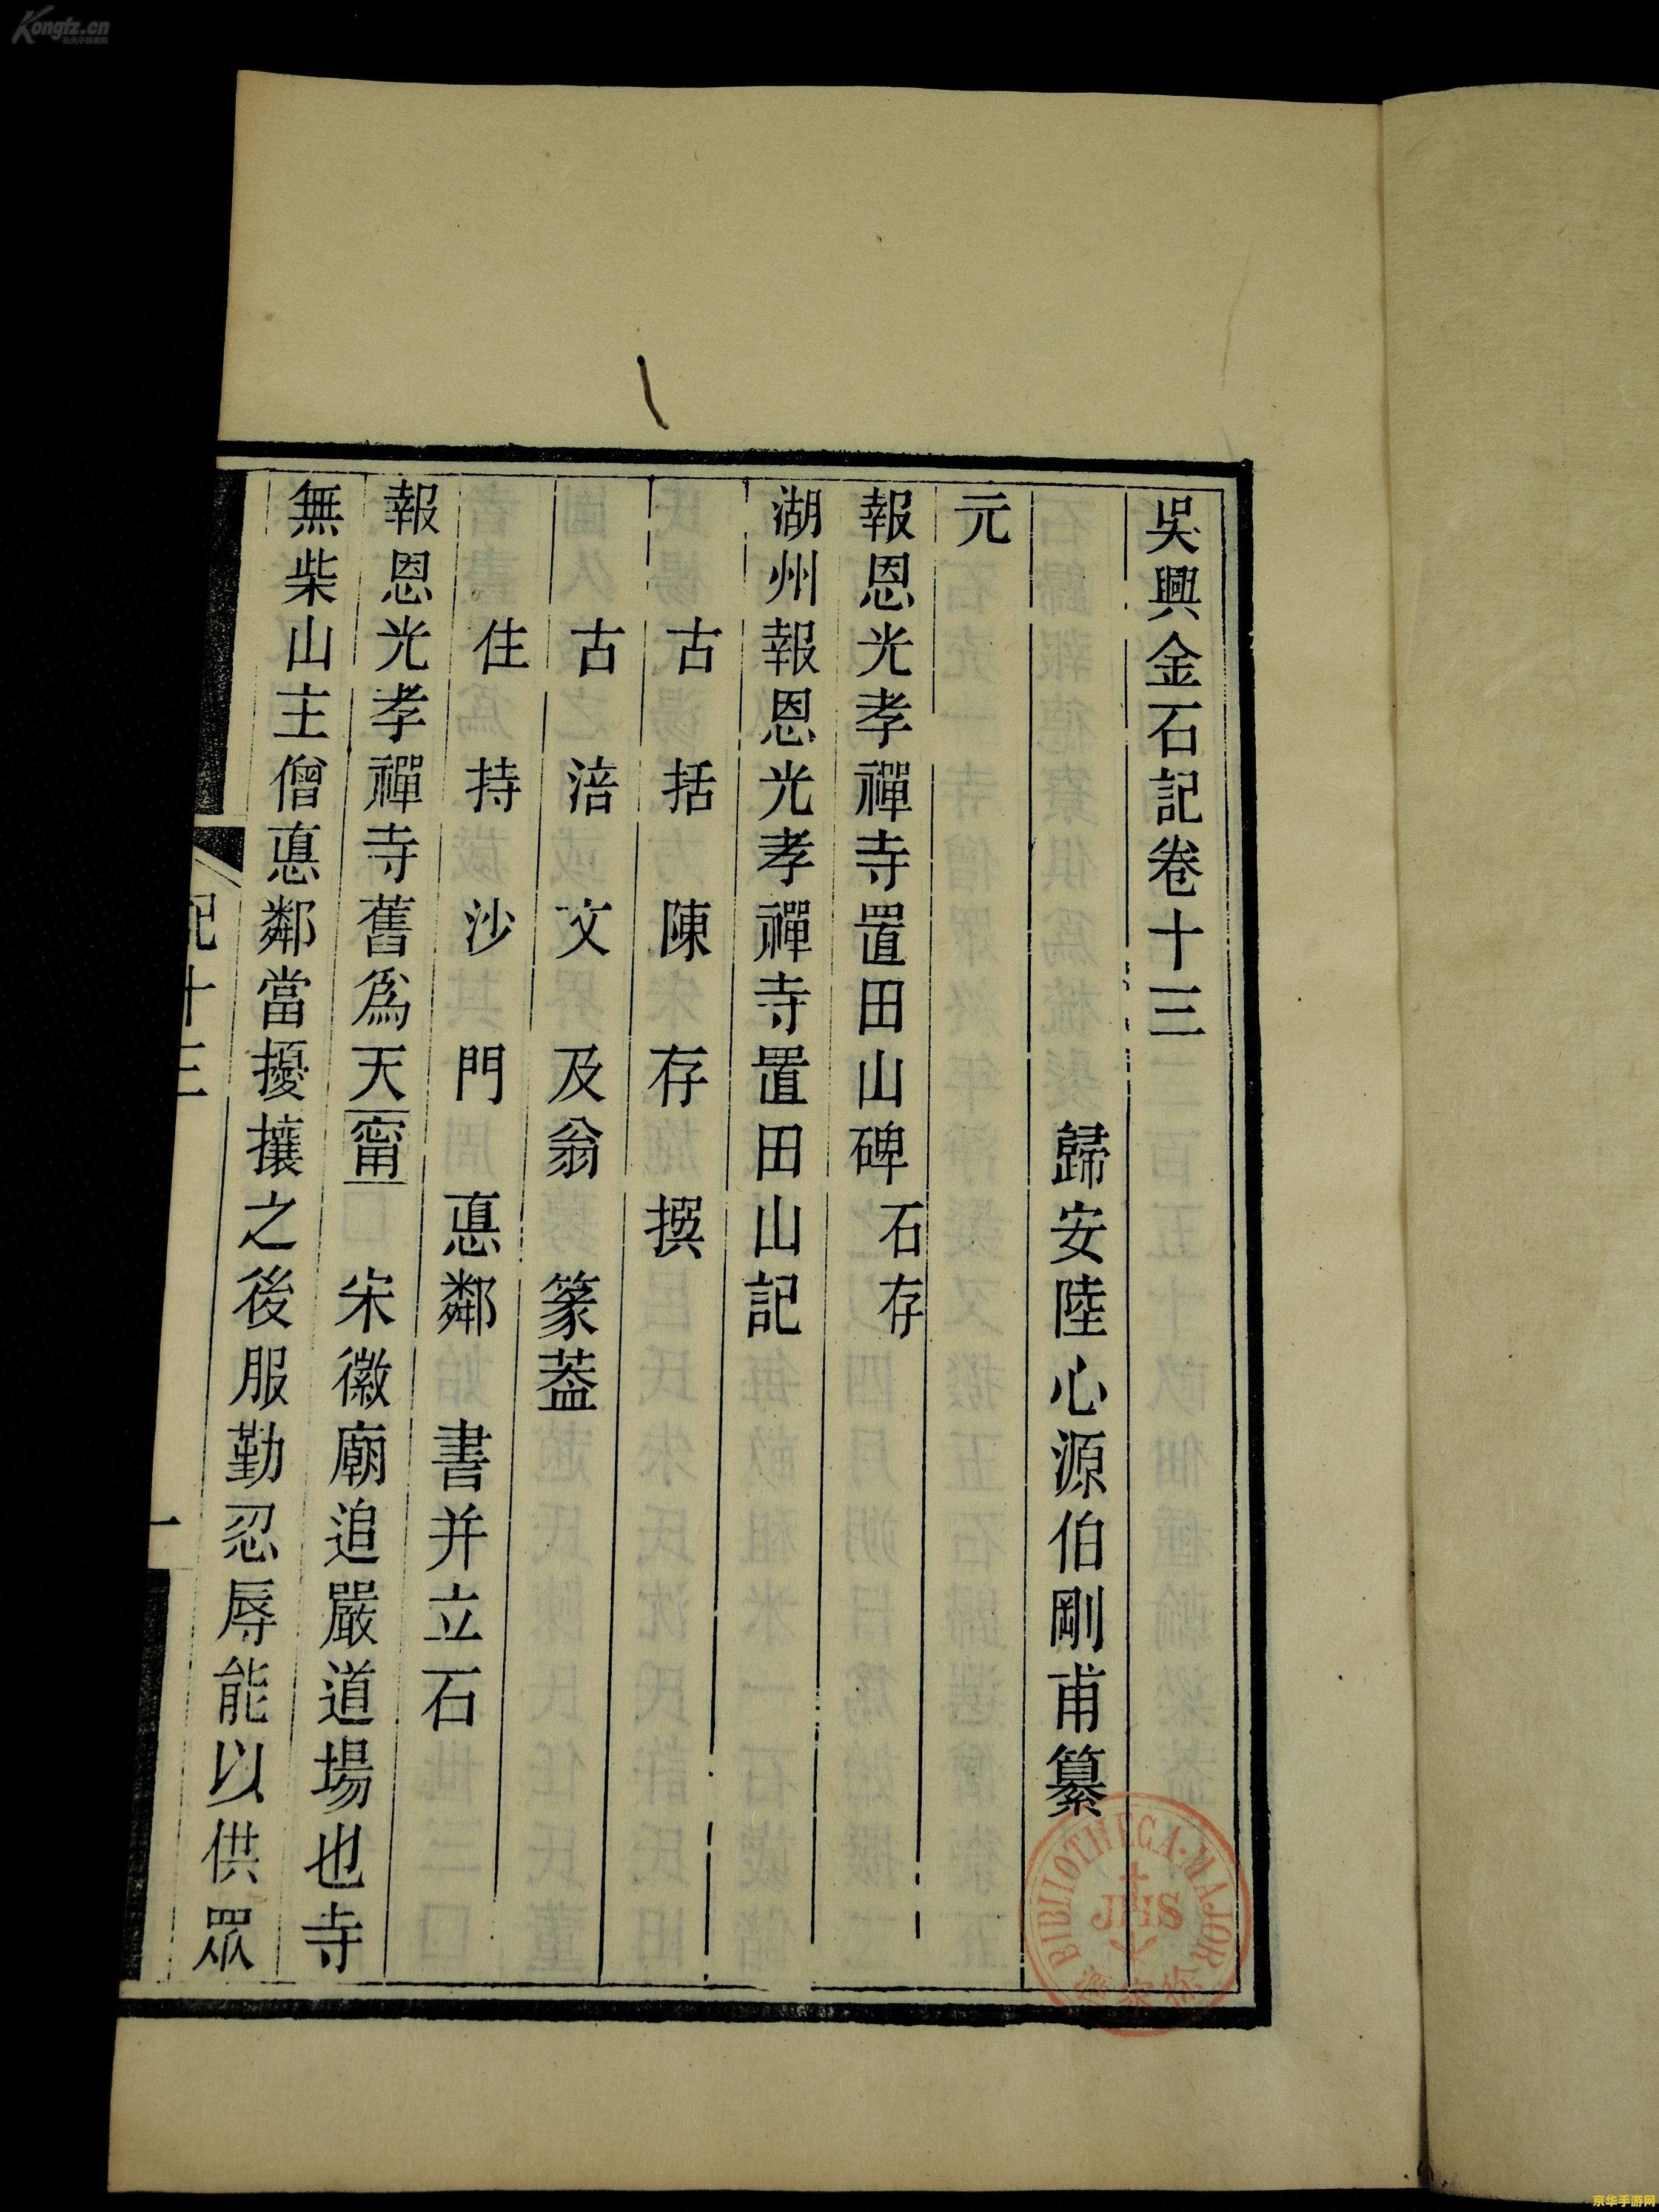 吳興金石記卷十三
歸安陸心源伯剛甫纂
元
報恩光孝禪寺置田山碑 石存
湖州報恩光孝禪寺置田山記
古括陳存撰
古涪文及翁篆蓋
住持沙門悳鄰書并立石
報恩光孝禪寺舊為天甯 宋徽廟追嚴道場也寺
無柴山主僧悳鄰當擾攘之後服勤忍辱能以供眾
記十三
一
BIBLIOTHECA·MAJOR
JHS
Kongfz.cn
孔夫子旧书网
京华手游网